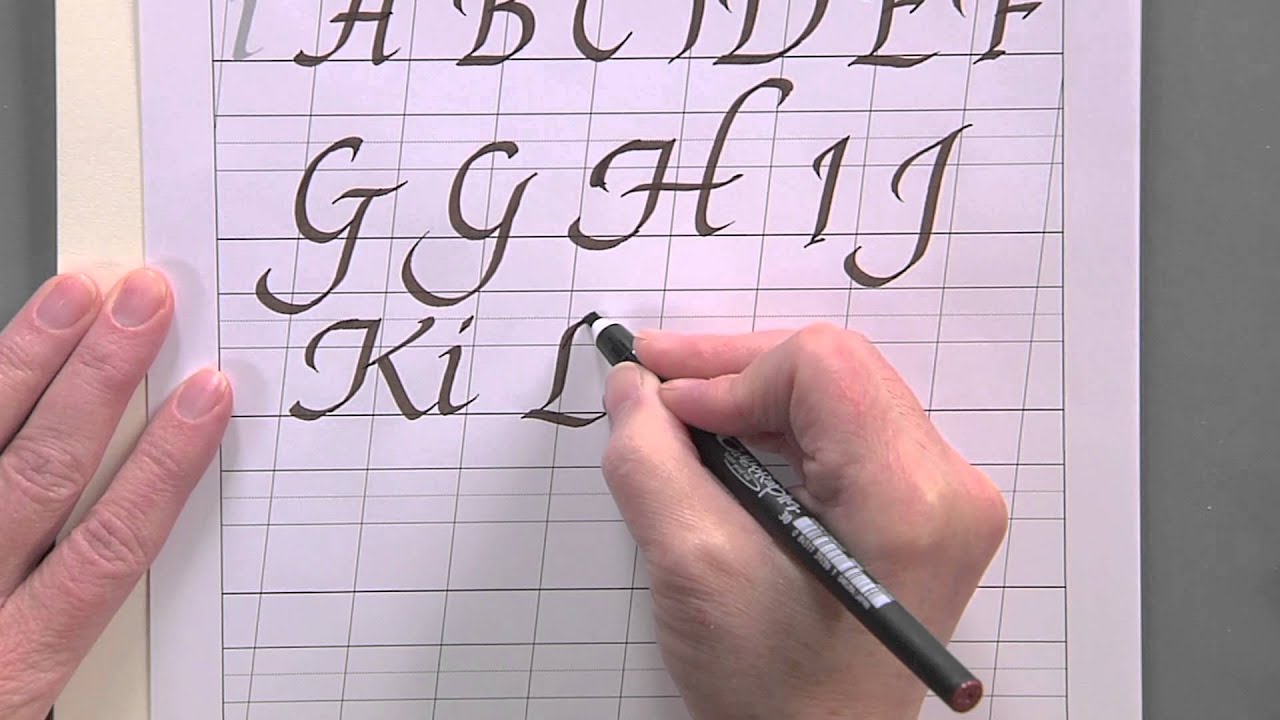 A B C D E F
G G H I J
Ki L